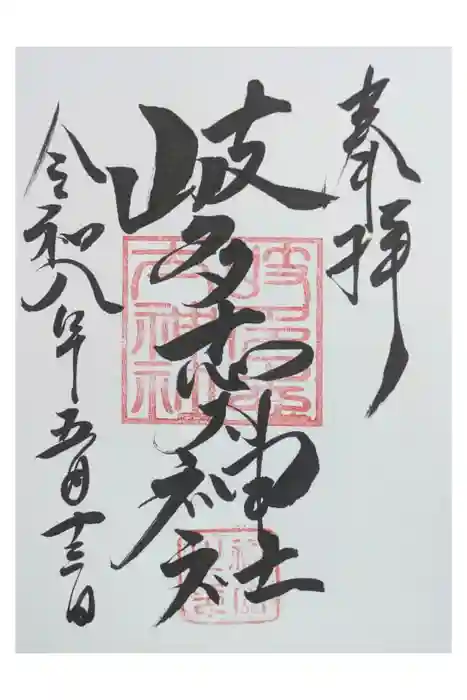 奉拝
岐多志太神社
令和八年五月十三日